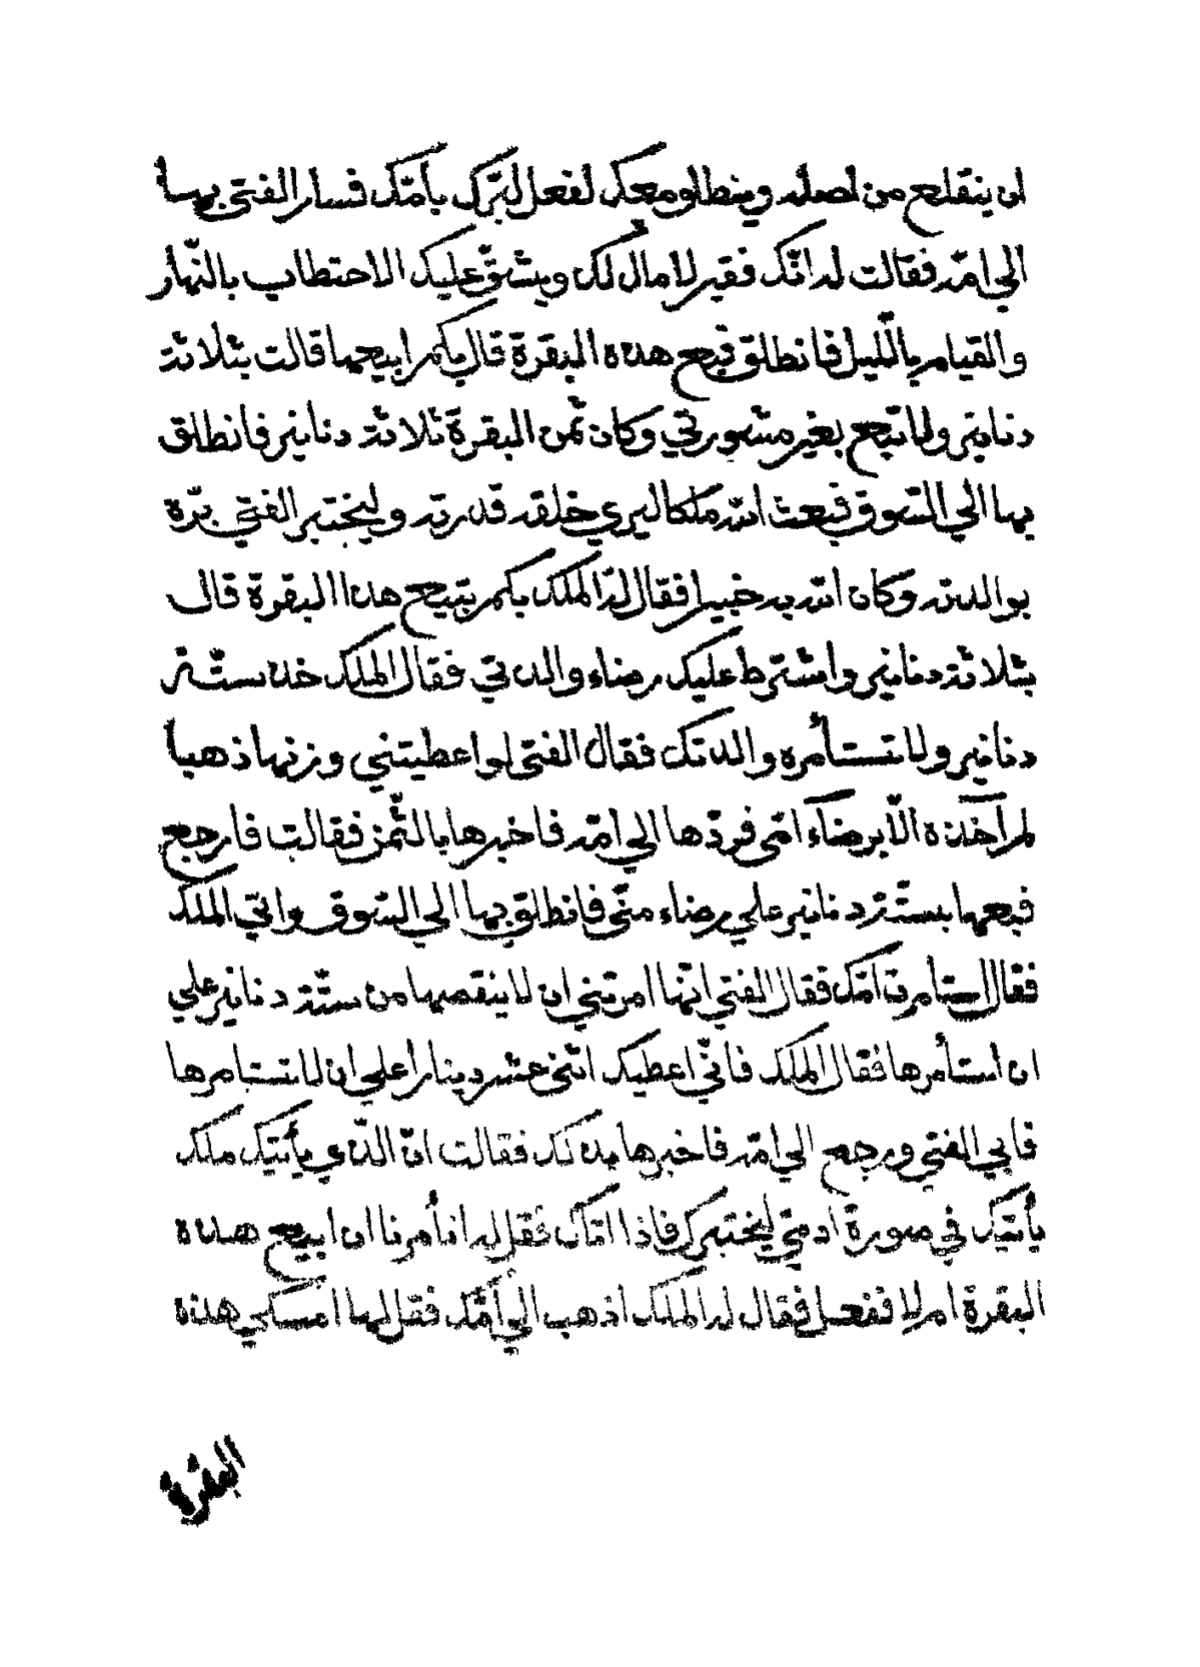 ان ينقلع من اصله وينطلق معك لفعل لبرّك بأمّك فسار الفتى بها
الي امّه فقالت له انّك فقير لا مال لك ويشقّ عليك الاحتطاب بالنّهار
والقيام باللّيل فانطلق فبع هذه البقرة قال بكم ابيعها قالت بثلاثة
دنانير ولا تبع بغير مشورتي وكان ثمن البقرة ثلاثة دنانير فانطلق
بها الي السّوق فبعث الله ملكا ليري خلقه قدرته وليختبر الفتي برّه
بوالدته وكان الله به خبيرا فقال له الملك بكم تبيع هذا البقرة قال
بثلاثة دنانير واشترط عليك رضاء والدتي فقال الملك خذ ستّة
دنانير ولا تستأمره والدتك فقال الفتي لو اعطيتني وزنها ذهبا
لم آخذه الّا برضاء امّي فردّها الي امّه فاخبرها بالثّمن فقالت فارجع
فبعها بستّة دنانير علي رضاء منّي فانطلق بها الي السّوق واتي الملك
فقال استأمرت امّك فقال الفتي انّها امرتني ان لا ينقصها من ستّة دنانير علي
ان استأمرها فقال الملك فانّي اعطيك اثني عشر دينارا علي ان لا تستامرها
فابي الفتي ورجع الي امّه فاخبرها بذلك فقالت انّ الّذي يأتيك ملك
يأتيك في صورة ادمي ليختبرك فاذا اتاك فقل له اتأمرنا ان ابيع هذه
البقرة ام لا ففعل فقال له الملك اذهب الي أمّك فقل لها امسكي هذه
البقرة